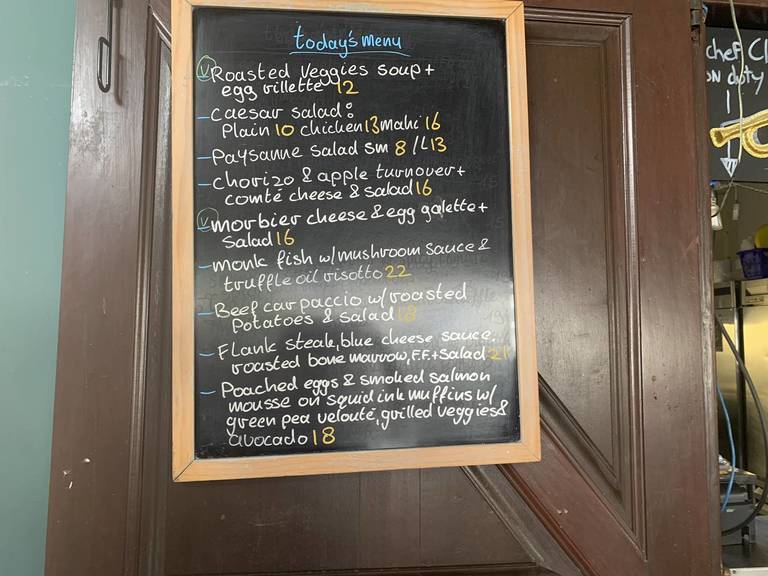 today's menu
V Roasted Veggies soup +
egg rillette 12
- Caesar salad:
Plain 10 chicken 13 mahi 16
- Paysanne Salad sm 8 / L 13
- Chorizo & apple turnover +
comté cheese & salad 16
V morbier cheese & egg galette +
salad 16
- monk fish w/ mushroom sauce &
truffle oil risotto 22
- Beef carpaccio w/ roasted
Potatoes & salad 18
- Flank steak, blue cheese sauce.
roasted bone marrow, F.F. + salad 21
- Poached eggs & smoked salmon
mousse on squid ink muffins w/
green pea velouté, grilled veggies &
avocado 18
chef
on duty